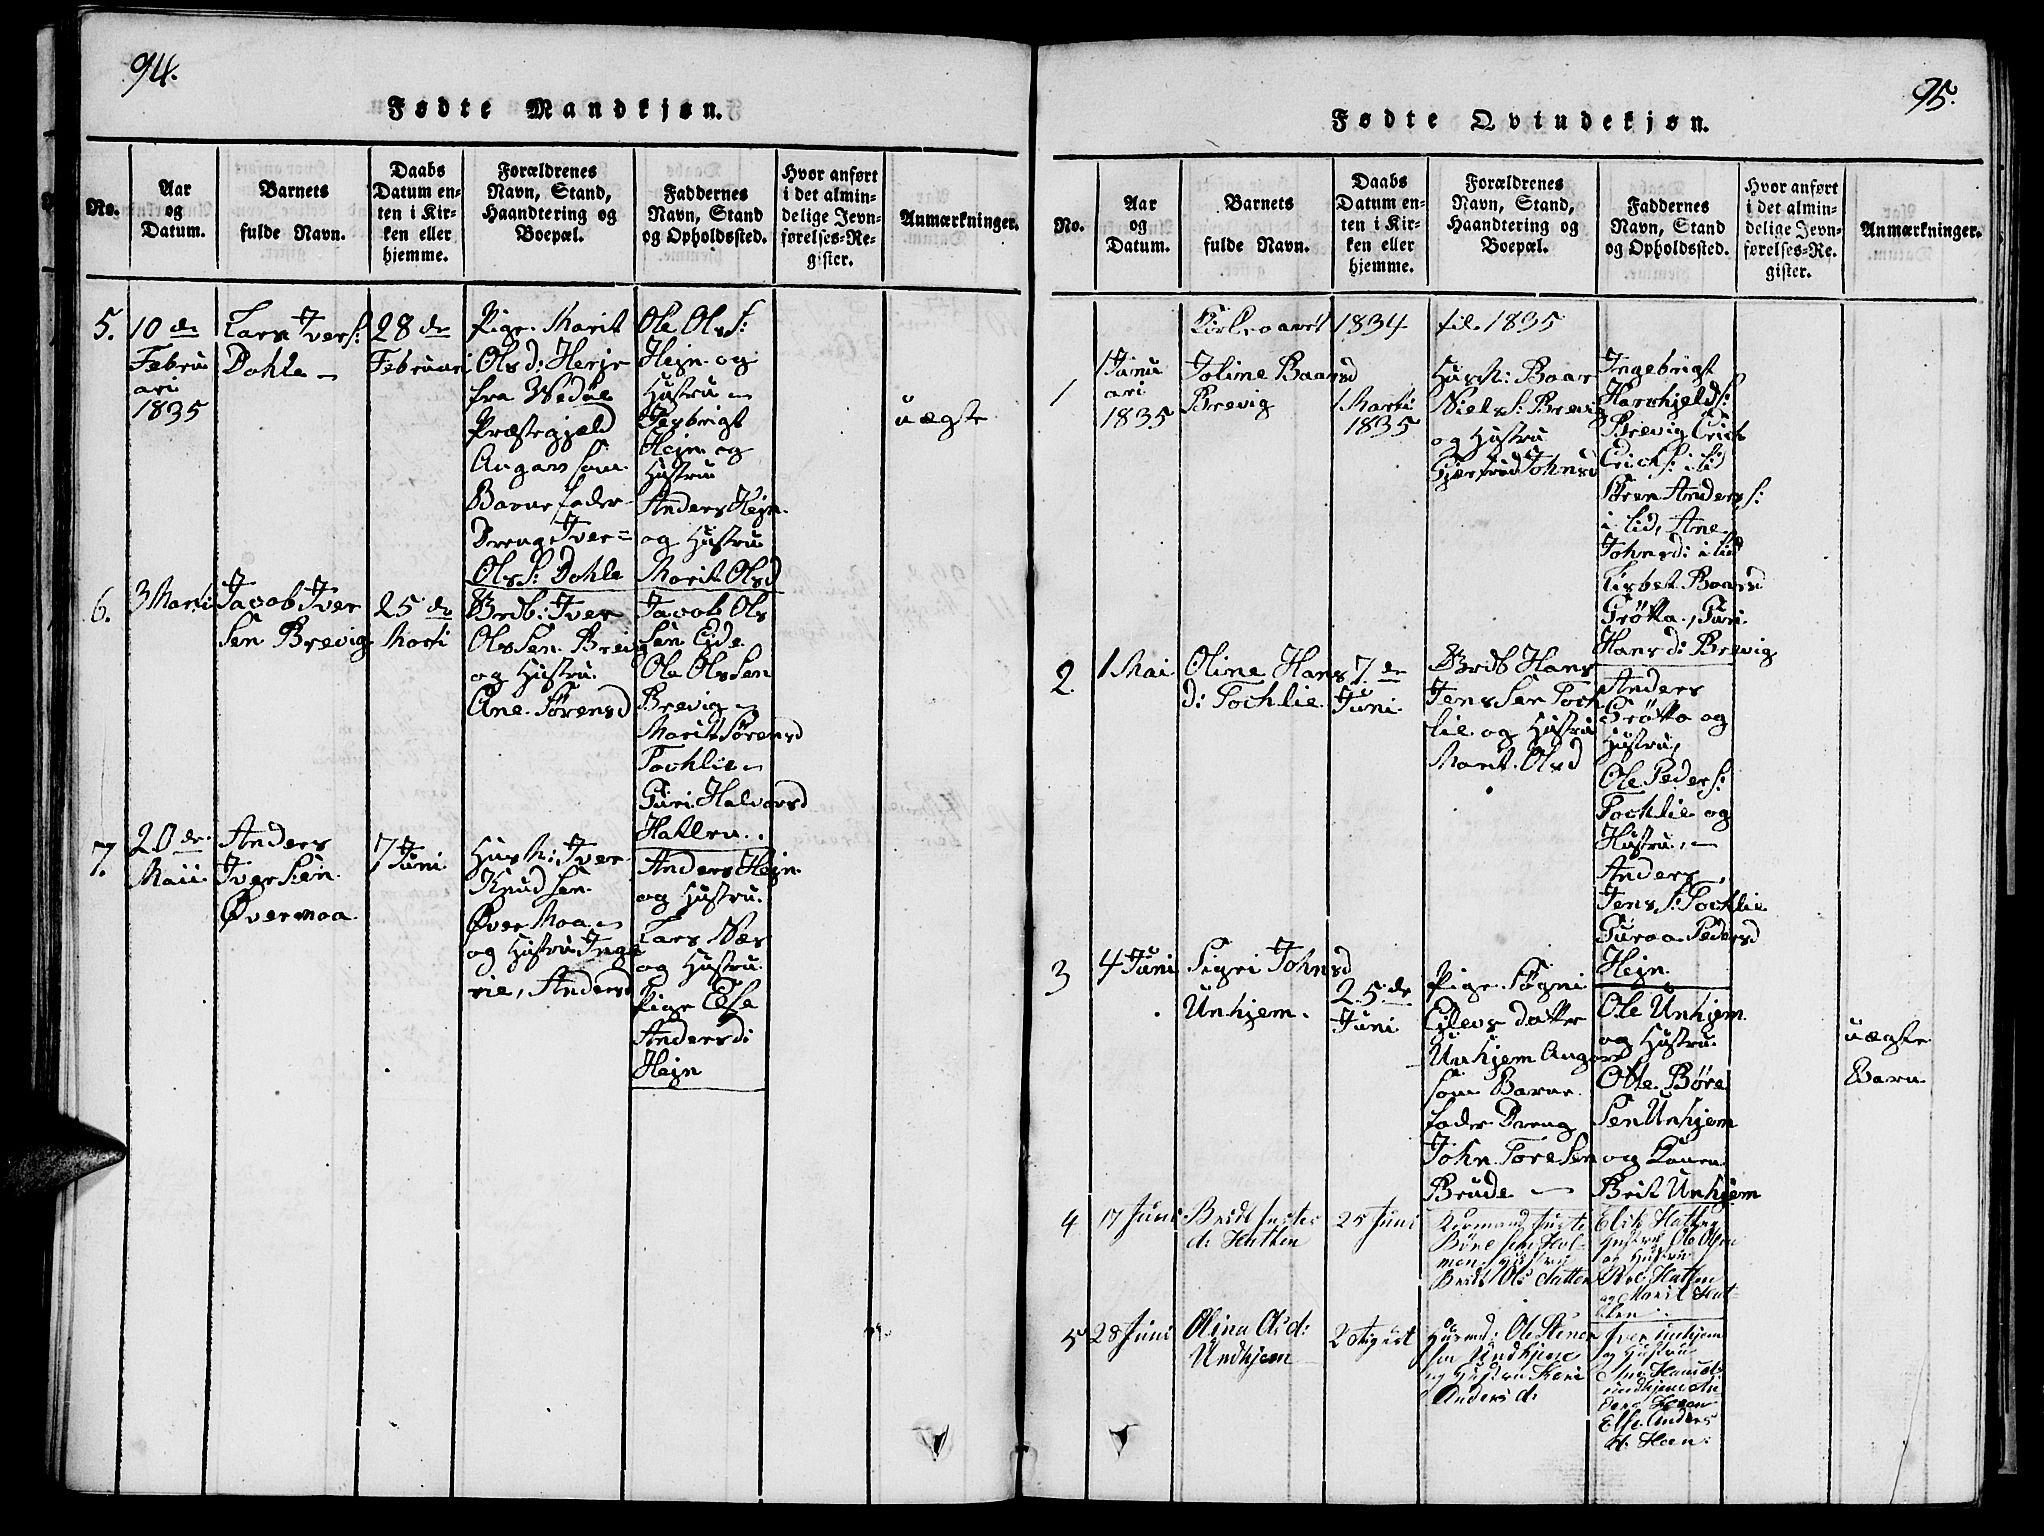 94.
Fødte Mandkjøn.
No.
Aar
og
Datum.
Barnets
fulde Navn.
Daabs
Datum en-
ten i Kir-
ken eller
hjemme.
Forældrenes
Navn, Stand,
Haandtering og
Boepæl.
Faddernes
Navn, Stand
og Opholdssted.
Hvor anført
i det almin-
delige Jevn-
førelses-Re-
gister.
Anmærkninger.
5.
10 de
Febru
ari
1835
Lars Ivers:
Dohle
28 de
Februari
Pige Marit
Olsd: Herje
fra Wedøe
Præstegjeld
Angav som
Barnefader
Dreng Iver
Ols S: Dohle
Ole Ols S:
Hejn og
Hustru
Hejn og
Hustru
Anders Hejn
og Hustru
Marit Olsd
uægte
6.
3 Marti
Jacob Iver
sen Brevig
25 de
Marti
Brdb: Iver
Ols Sen Brevig
og Hustru
Ane Sørensd
Jacob Ols
Sen Eide
Ole Ols Sen
Brevig
Marit Sørensd
Tochlie
Guri Halvorsd
Hatlen
7.
20 de
Maii
Anders
Iver Sen
Øvermoa
7 Juni
Husm: Iver
Knud Sen
Øver Moa
og Hustru Inge
rie, Andersd
Anders Hejn
og Hustru
Lars Næs
og Hustru
Pige Else
Andersd:
Hejn
95.
Fødte Qvindekjøn.
No.
Aar
og
Datum.
Barnets
fulde Navn.
Daabs
Datum en-
ten i Kir-
ken eller
hjemme.
Forældrenes
Navn, Stand,
Haandtering og
Boepæl.
Faddernes
Navn, Stand
og Opholdssted.
Hvor anført
i det almin-
delige Jevn-
førelses-Re-
gister.
Anmærkninger.
Kirkeaaret 1834 til 1835
1
1 Janu
ari
1835
Joline Baarsd
Brevig
1 Marti
1835
Husm: Baar
Niels S: Brevig
og Hustru
Gjertrud Johnsd
Ingebrigt
Brevig Erich
Erich S: i Lid
Søren Anders S:
i Lid, Ane
Johnsd: i Lid
Lisbet Baarsd
Grøtta, Guri
Hans d: Brevig
2
1 Mai
Oline Hans
d: Tochlie
7 de
Juni
Brdb Hans
Jens Sen Toch
lie og Hustru
Marit Olsd
Anders
Grøtta og
Hustru
Ole Peders:
Tochlie og
Hustru
Anders
Jens S: Tochlie
Guroa Pedersd
Hejn
3
4 Juni
Sigri Johnsd
Unhjem.
25 de
Juni
Pige Søgni
Eilevs datter
Unhjem Angav
som Barne
fader Dreng
John Tore Sen
Brude
Ole Unhjem
og Hustru
Otte Børe
Sen Unhjem
og Konen
Brit Unhjem
uægte
Barn
4
17 Juni
d: Hatlen
25 Juni
Børe sen Hol-
men, Hustru
Ols datter
Hustru Ole Olsen
og Hustru
og Marit Hat-
len
5
28 Juni
Olina Olsd:
Undhjem
2 August
Ole Stener
sen Undhjem
og Hustru Kari
Anders d:
Iver Unhjem
og Hustru
Else Anders
d: Hoen